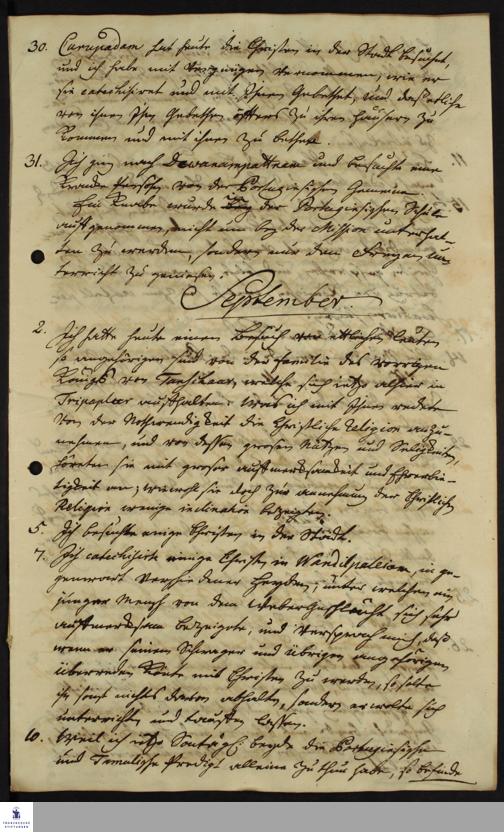 30. Carupadam hat heute die Christen in der Stadt besuchet,
und ich habe mit Vergnügen vernommen, wie er
sie catechisiret und mit ihnen gebethet, und daß etliche
von ihnen ihn gebethen öffters zu ihren Häusern zu
kommen und mit ihnen zu bethen.
31. Ich ging nach Dewanampattnam und besuchte eine
krancke Person von der Portugiesischen Gemeine.
Ein Knabe wurde in der Portugiesischen Schule
aufgenommen, nicht um bey der Mission unterhal-
ten zu werden, sondern nur den freyen Un-
terricht zu geniesen.
September.
2. Ich hatte heute einen Besuch von etlichen Leuten
so angehörigen sind von der familie des vorigen
Königs von Tanschaur, welche sich itzo alhier in
Tripapleur aufhalten: Was ich mit ihnen redete
von der Nothwendigkeit die Christliche Religion anzu-
nehmen, und von dessen grosen Nutzen und Seligkeiten,
höreten sie mit groser aufmercksamkeit und Ehrerbie-
tigkeit an; wiewohl sie doch zur annehmung der Christlichen
Religion wenige inclination bezeigten.
5. Ich besuchte einige Christen in der Stadt.
7. Ich catechisirte einige Christen in Wandipaleiam, in ge-
genwart verschiedener Heyden; unter welchen ein
junger Mensch von dem Webergeschlecht sich sehr
aufmercksam bezeigete, und versprach mich, daß
wenn er seinen Schwager und übrigen angehörigen
überreden könte mit Christen zu werden, so solte
ihn sonst nichts davon abhalten, sondern er wolte sich
unterrichten und tauffen lassen.
10. Weil ich itzo Sontägl. beyde die Portugiesische
und Tamulische Predigt alleine zu thun habe, so befinde